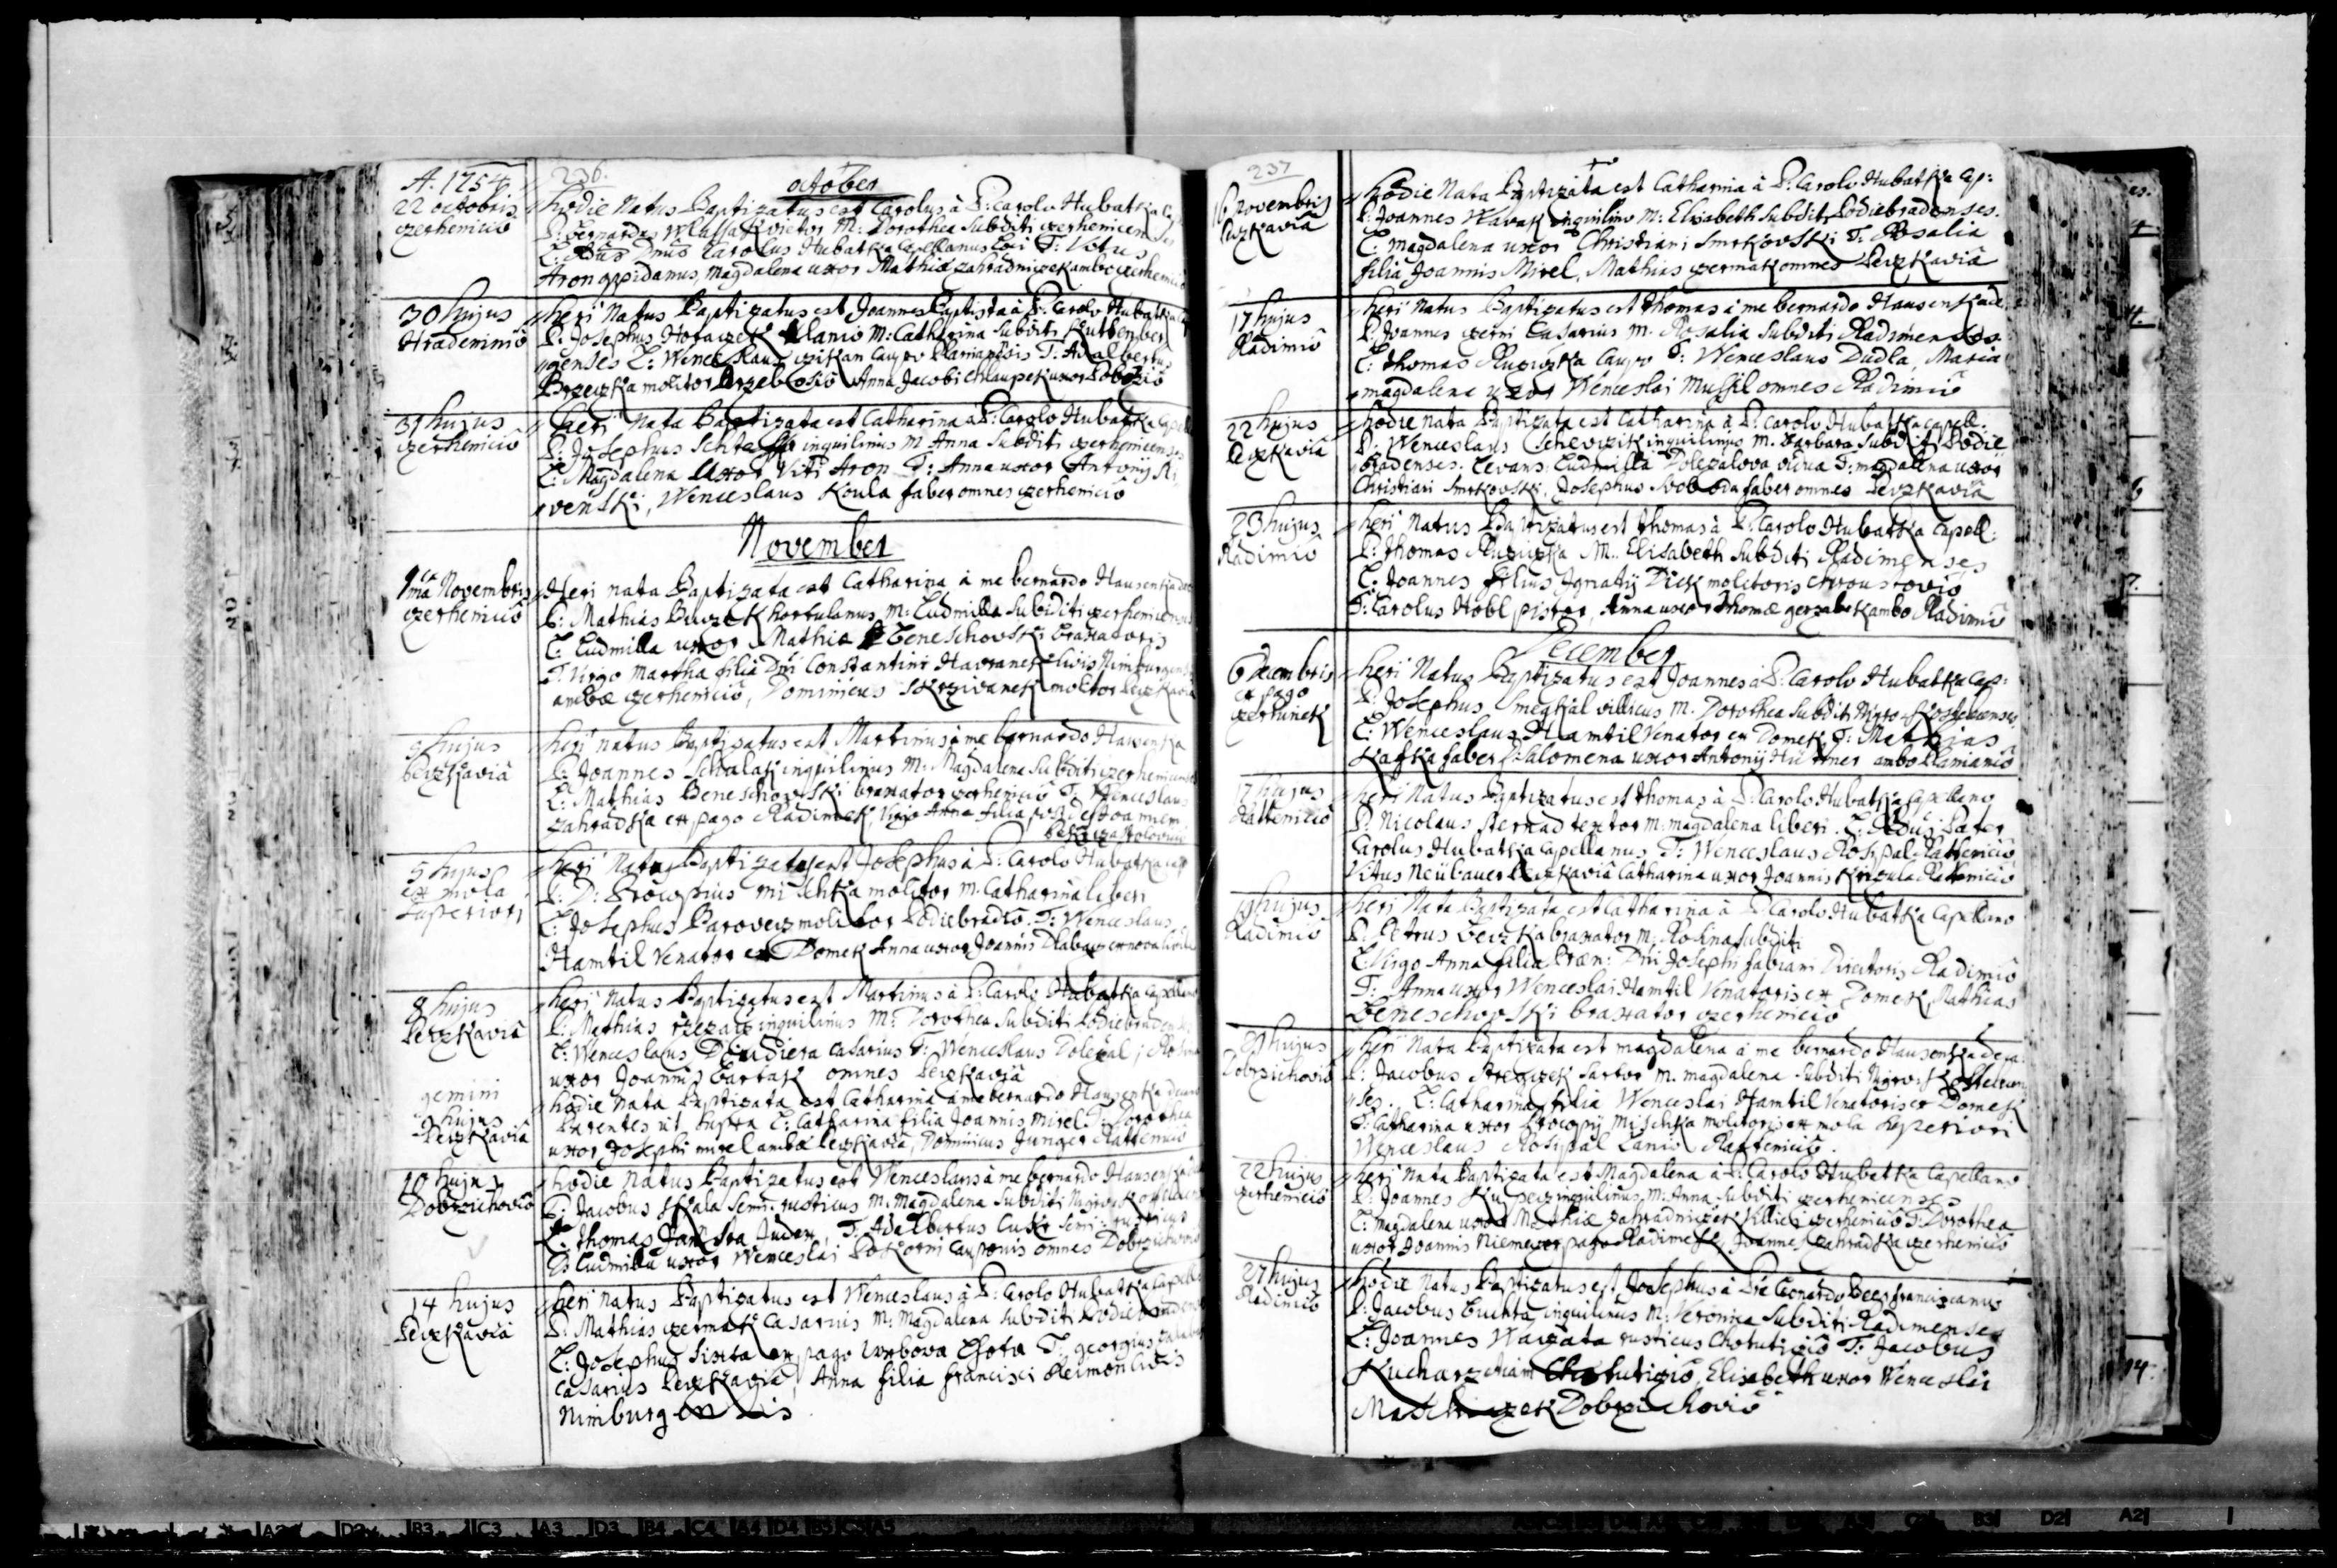 A. 1754
236.
October
22 octobris
czerhenicio
Hodie Natus Baptizatus est Carolus à P: Carolo Hubatka
P: Bernardus M: Dorothea Subditi czerhenicen
L: Dnus Carolus Hubatka Capellanus T: Vitus
Aron oppidanus, Magdalena uxor Mathiae zahradniczek ambo czerhenicio
30 hujus
Hradeninio
heri Natus Baptizatus est Joannes Baptista à P: Carolo Hubatka
P: Josephus Horaczek Lanio M: Catharina Subditi Kuttenber
genses L: Wenceslaus caupo Planianensis T: Adalbertus
Brzeczka molitor Anna Jacobi Chlaupek uxor
31 hujus
czerhenicio
heri Nata Baptizata est Catharina à P: Carolo Hubatka Capell
P: Josephus inquilinus M Anna Subditi czerhenicenses
L: Magdalena Uxor Viti Aron T: Anna uxor Antonij Ri
venski, Wenceslaus Koula faber omnes czerhenicio
November
1ma Novembris
czerhenicio
Heri nata Baptizata est Catharina à me bernardo Hausenka
P: Mathias hortulanus M: Ludmilla Subditi czerhenicenses
L: Ludmilla uxor Mathiae Beneschovski braxatoris
T. Virgo Martha filia Dni Constantini Havranek civis Nimburgensis
ambae czerhenicio, Dominicus Skrzivanek molitor Peczkavia
9 hujus
Peczkavia
heri natus Baptizatus est Martinus à me bernardo Hausenka
P: Joannes inquilinus M: Magdalena Subditi czerhenicenses
L: Mathias Beneschovski braxator czerhenicio T: Wenceslaus
zahradka ex pago Radimek, Virgo Anna filia
5 hujus
ex mola
superiori
heri Natus Baptizatus est Josephus à P: Carolo Hubatka
P: D: Procopius Mischka molitor M: Catharina liberi
L: Josephus molitor Podiebradio. T: Wenceslaus
Hamtil Venator ex Domek Anna uxor Joannis
8 hujus
Peczkavia
heri Natus Baptizatus est Martinus à P: Carolo Hubatka Capellano
P: Mathias inquilinus M: Dorothea Subditi Podiebraden
L: Wenceslaus casarius T: Wenceslaus Dolezal; Rosina
uxor Joannis Bartak omnes Peczkavia
gemini
9 hujus
Peczkavia
hodie Nata Baptizata est Catharina à me bernardo Hausenka decano
Parentes ut supra L: Catharina filia Joannis Mirel T: Dorothea
uxor Josephi mirel ambae Peczkavia, Dominicus Junger Rattenicio
10 hujus
Dobrzichovio
hodie Natus Baptizatus est Wenceslaus à me bernardo Hausenka
P: Jacobus Skala Semi: rusticus M: Magdalena Subditi Nigro Kostelecenses
L: Thomas Judex, T: Adalbertus Cukr semi: rusticus
Ludmilla uxor Wenceslai Pokorni cauponis omnes Dobrzichovio
14 hujus
Peczkavia
heri Natus Baptizatus est Wenceslaus à P: Carolo Hubatka Capella
P: Mathias czermak Casarius M: Magdalena Subditi Podiebradenses
L: Josephus Sixta ex pago Wrbova Lhota T: georgius
casarius Peczkavia, Anna filia francisci civis
Nimburgensis
237
novembris
Peczkavia
hodie Nata Baptizata est Catharina à P: Carolo Hubatka Cap:
P: Joannes inquilinus M: Elisabeth Subditi Podiebradenses.
L: Magdalena uxor Christiani Smrkovski T: Rosalia
filia Joannis Mirel, Mathias czermak omnes Peczkavia
17 hujus
Radimio
heri natus Baptizatus est Thomas à me bernardo Hausenka
P: Joannes czerni Casarius M: Rosalia Subditi Radimenses
L: Thomas Ruziczka Caupo T: Wenceslaus Dudla, Maria
magdalena uxor Wenceslai Mussil omnes Radimio
22 hujus
Peczkavia
hodie nata Baptizata est Catharina à P: Carolo Hubatka capell:
P: Wenceslaus inquilinus M. Barbara Subditi Podie
bradenses. Levans: Ludmilla Dolezalova vidua T: magdalena uxor
Christiani Smrkovski, Josephus Svoboda faber omnes Peczkavia
23 hujus
Radimio
heri Natus Baptizatus est Thomas à P: Carolo Hubatka Capell:
P: Thomas Ruziczka M: Elisabeth Subditi Radimenses
L: Joannes filius Ignatij Dick molitoris Chroustovio
T: Carolus Hobl pistor, Anna uxor Thomae ambo Radimio
December
6 Decembris
ex pago
czertunek
heri Natus Baptizatus est Joannes à P: Carolo Hubatka Cap:
P: Josephus Smegkal villicus M: Dorothea Subditi Nigro-Kostelecenses
L: Wenceslaus Hamtil Venator ex Domek T: Mathias
Kafka faber Salomena uxor Antonij Hüttner ambo Planianio
17 hujus
Rattenicio
heri Natus Baptizatus est Thomas à P: Carolo Hubatka Capellano
P: Nicolaus Sternad textor M: magdalena liberi. L: Rdus: Pater
Carolus Hubatka Capellanus T: Wenceslaus Rosipal Rathenicio
Vitus Neübauer Peczkavia Catharina uxor Joannis Krzula Rattenicio
19 hujus
Radimio
heri Nata Baptizata est Catharina à P: Carolo Hubatka Capellano
P: Petrus braxator M: Rosina Subditi
L: Virgo Anna filia Praen: Dni Josephi fabiani Directoris Radimio
T: Anna uxor Wenceslai Hamtil Venatoris ex Domek, Mathias
Beneschovski braxator czerhenicio
21 hujus
Dobrzichovio
heri Nata Baptizata est magdalena à me bernardo Hausenka deca:
P: Jacobus Sartor M. magdalena Subditi Nigro-Kostelecen
ses. L: Catharina filia Wenceslai Hamtil Venatoris ex Domek
T: Catharina uxor Procopij Mischka molitoris ex mola superiori
Wenceslaus Rosipal Lanio Rattenicio.
22 hujus
czerhenicio
heri Nata Baptizata est Magdalena à P: Carolo Hubatka Capellano
P: Joannes Kupecz inquilinus M: Anna Subditi czerhenicenses
L: Magdalena uxor Mathiae zahradniczek Villici czerhenicio T: Dorothea
uxor Joannis Niemecz ex pago Radimek, Joannes zahradka czerhenicio
27 hujus
Radimio
hodie Natus Baptizatus est Josephus à Leonardo franciscanus
P: Jacobus Buchta inquilinus M: Veronica Subditi Radimenses
L: Joannes rusticus Chotuticio T: Jacobus
Kucharz etiam Chotuticio, Elisabeth uxor Wenceslai
Dobrzichovio